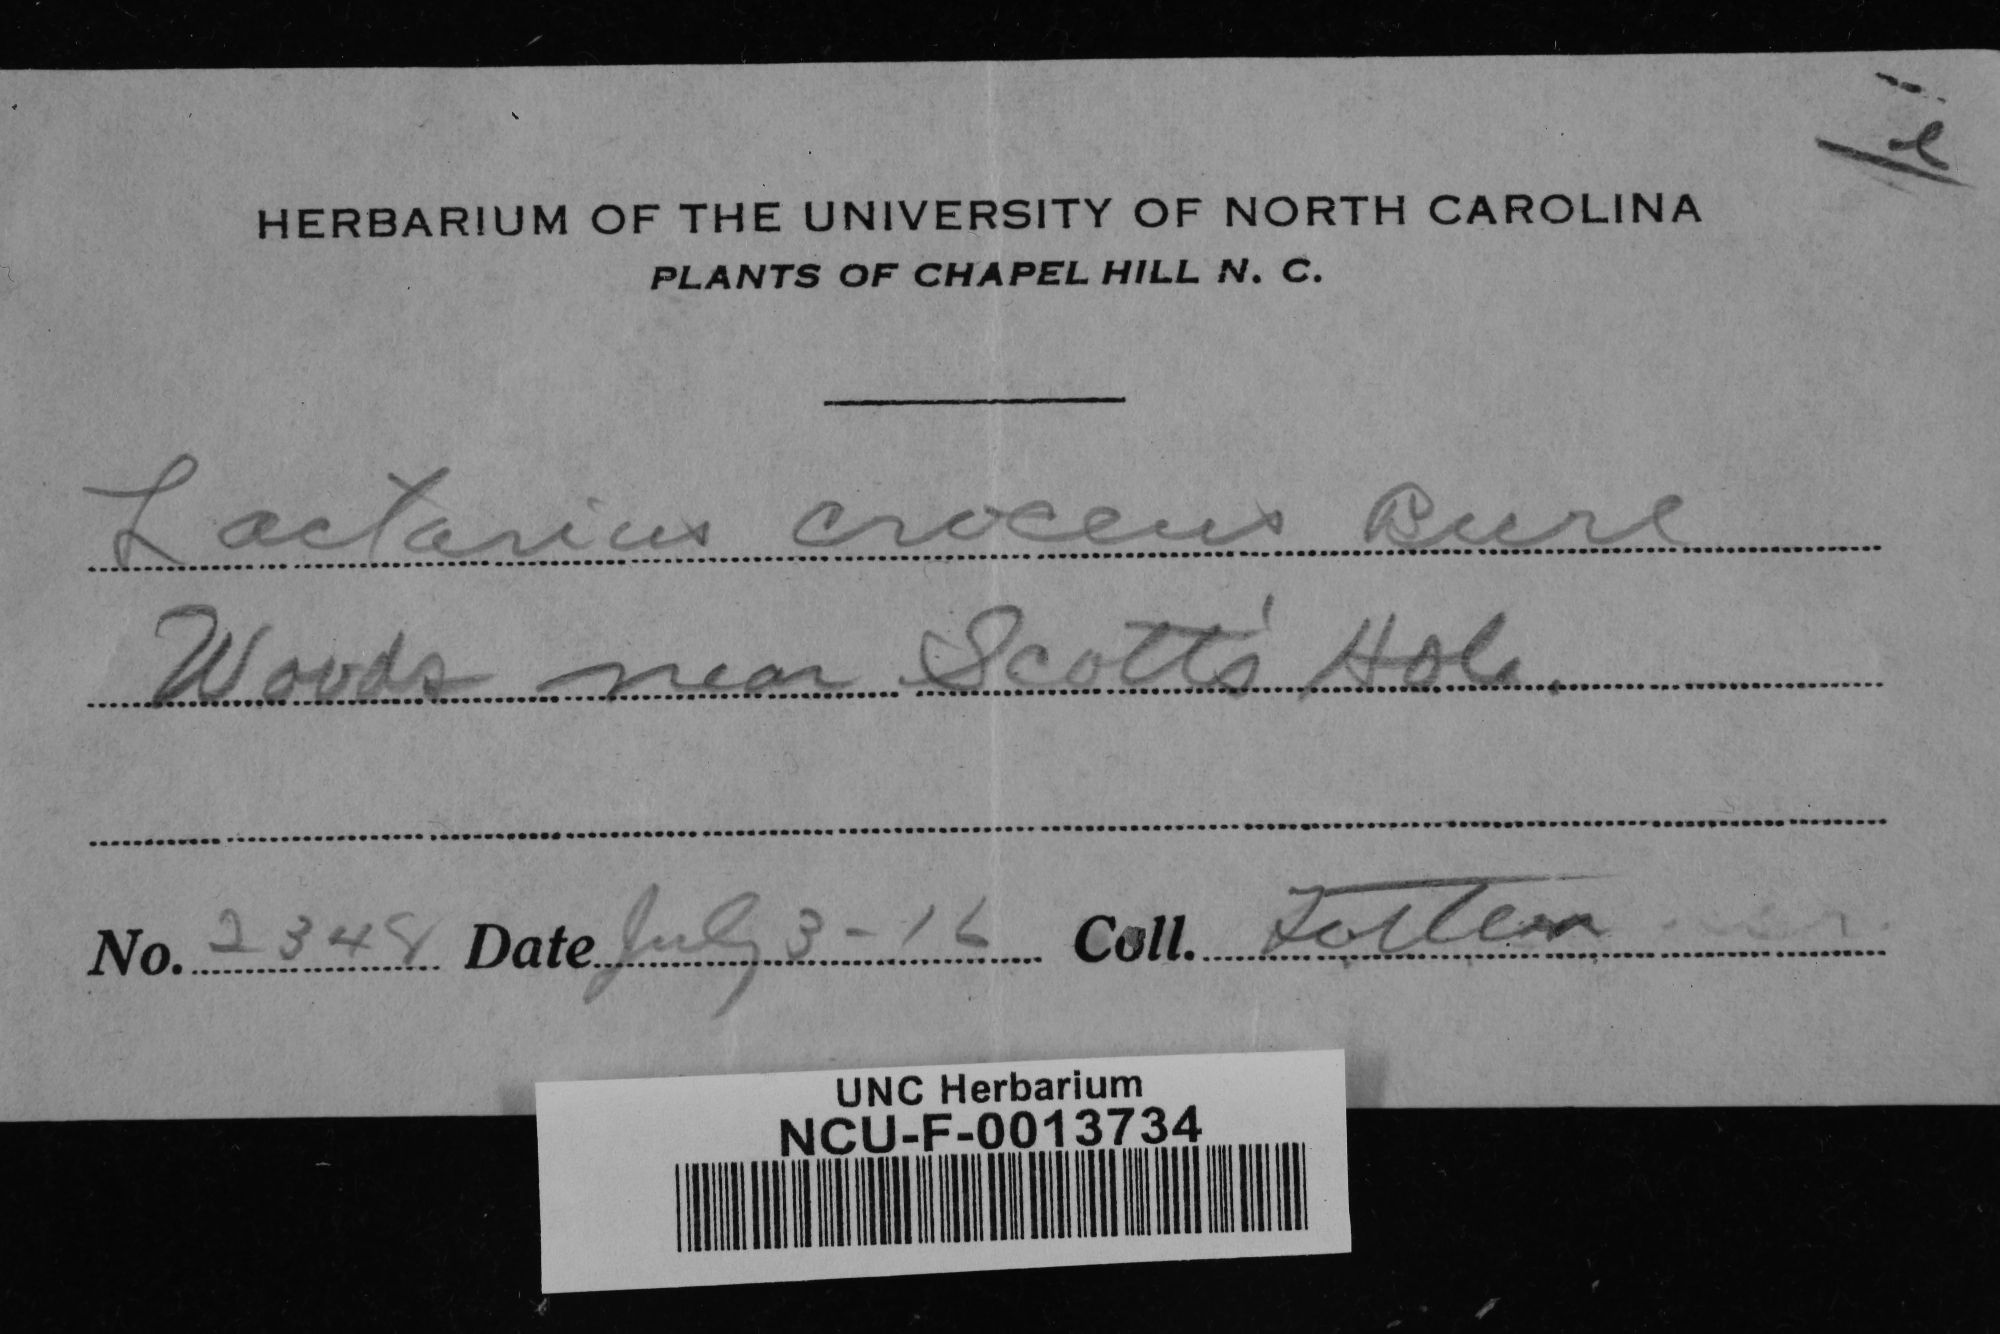 HERBARIUM OF THE UNIVERSITY OF NORTH CAROLINA
PLANTS OF CHAPEL HILL N. C.
Lactarius croceus Burl
Woods near Scott's Hole.
No. 2348 Date July 3-16 Coll. Totten
UNC Herbarium
NCU-F-0013734